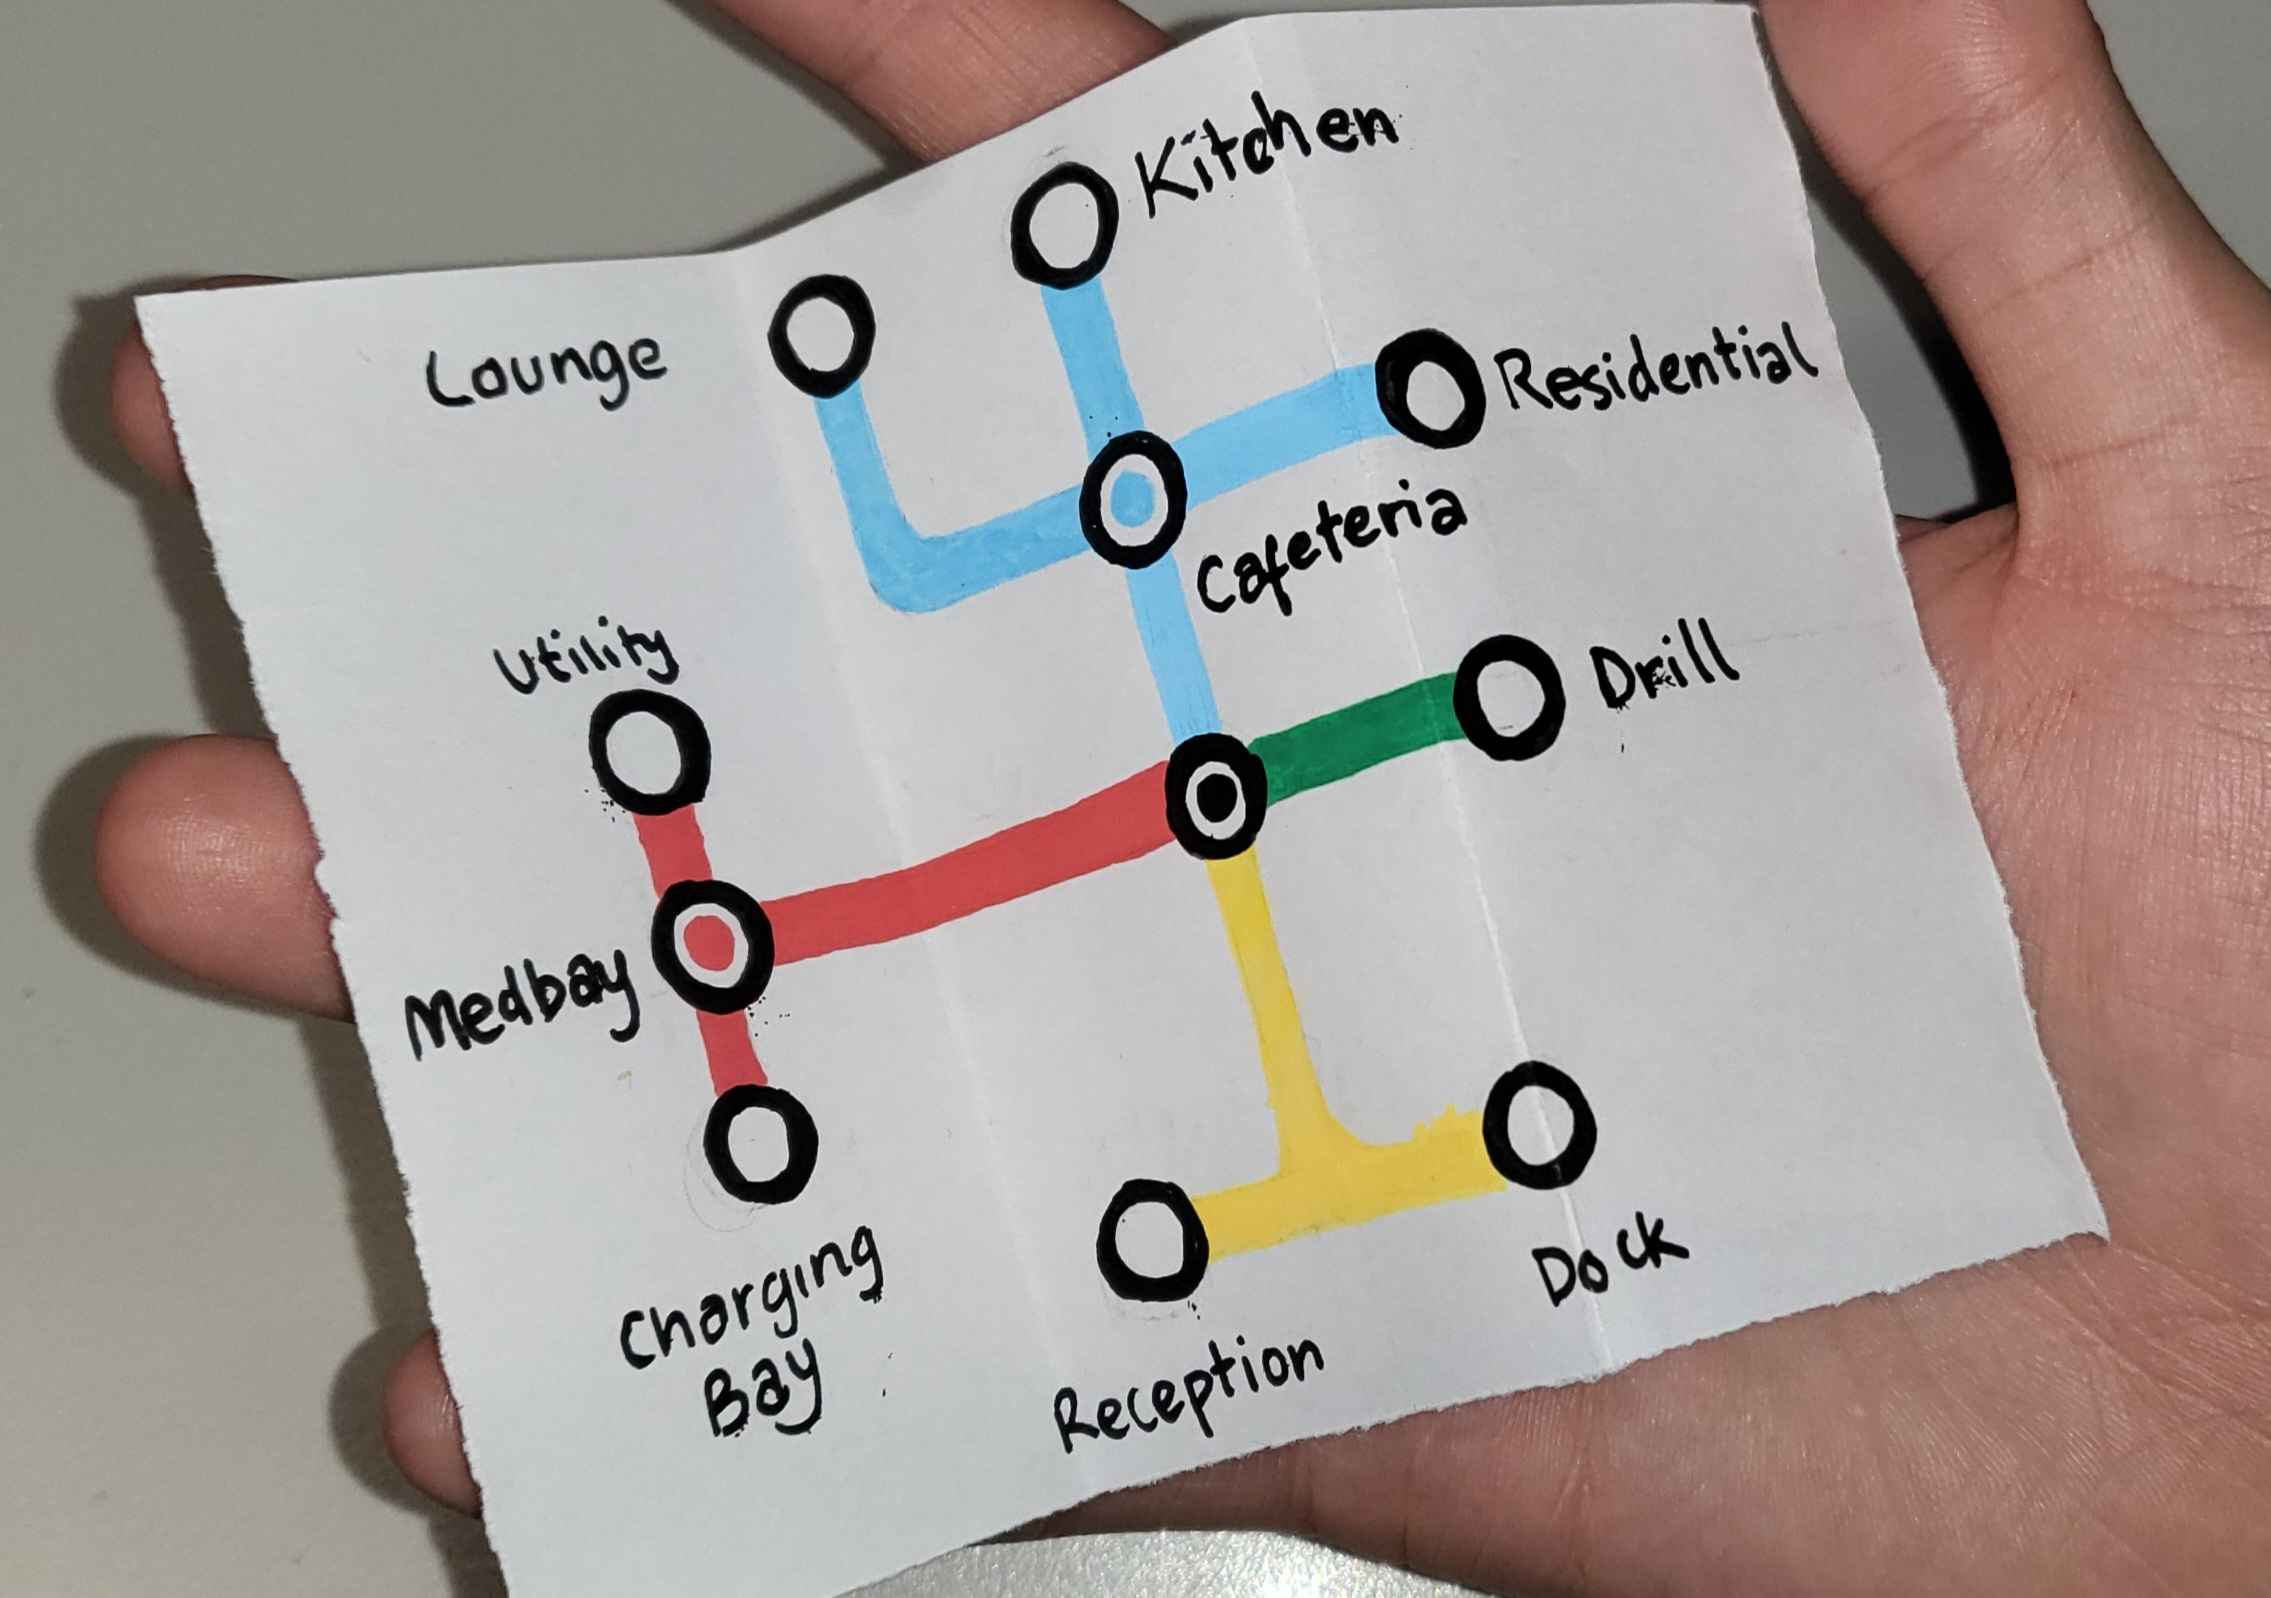 Kitchen
Lounge
Residential
Cafeteria
Utility
Drill
Medbay
Charging
Bay
Dock
Reception